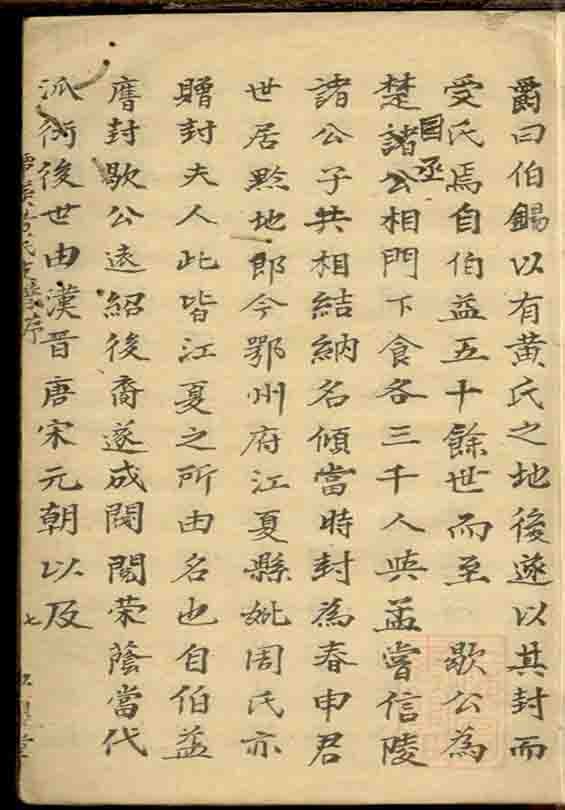 爵曰伯錫以有黄氏之地後遂以其封而
受氏焉自伯益五十餘世而至 歇公為
楚諸公相門下食各三千人與孟嘗信陵
國丞
諸公子共相結納名傾當時封為春申君
世居黔地郎今鄂州府江夏縣妣周氏亦
贈封夫人此皆江夏之所由名也自伯益
膺封歇公遠紹後裔遂成閥閱荣蔭當代
派衍後世由漢晋唐宋元朝以及
氏 序
七